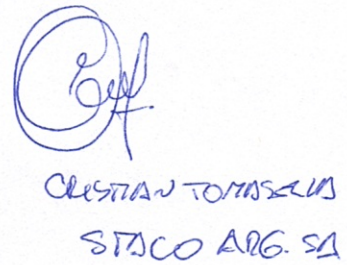 CRISTIAN TOMASELLA
STACO ARG. SA